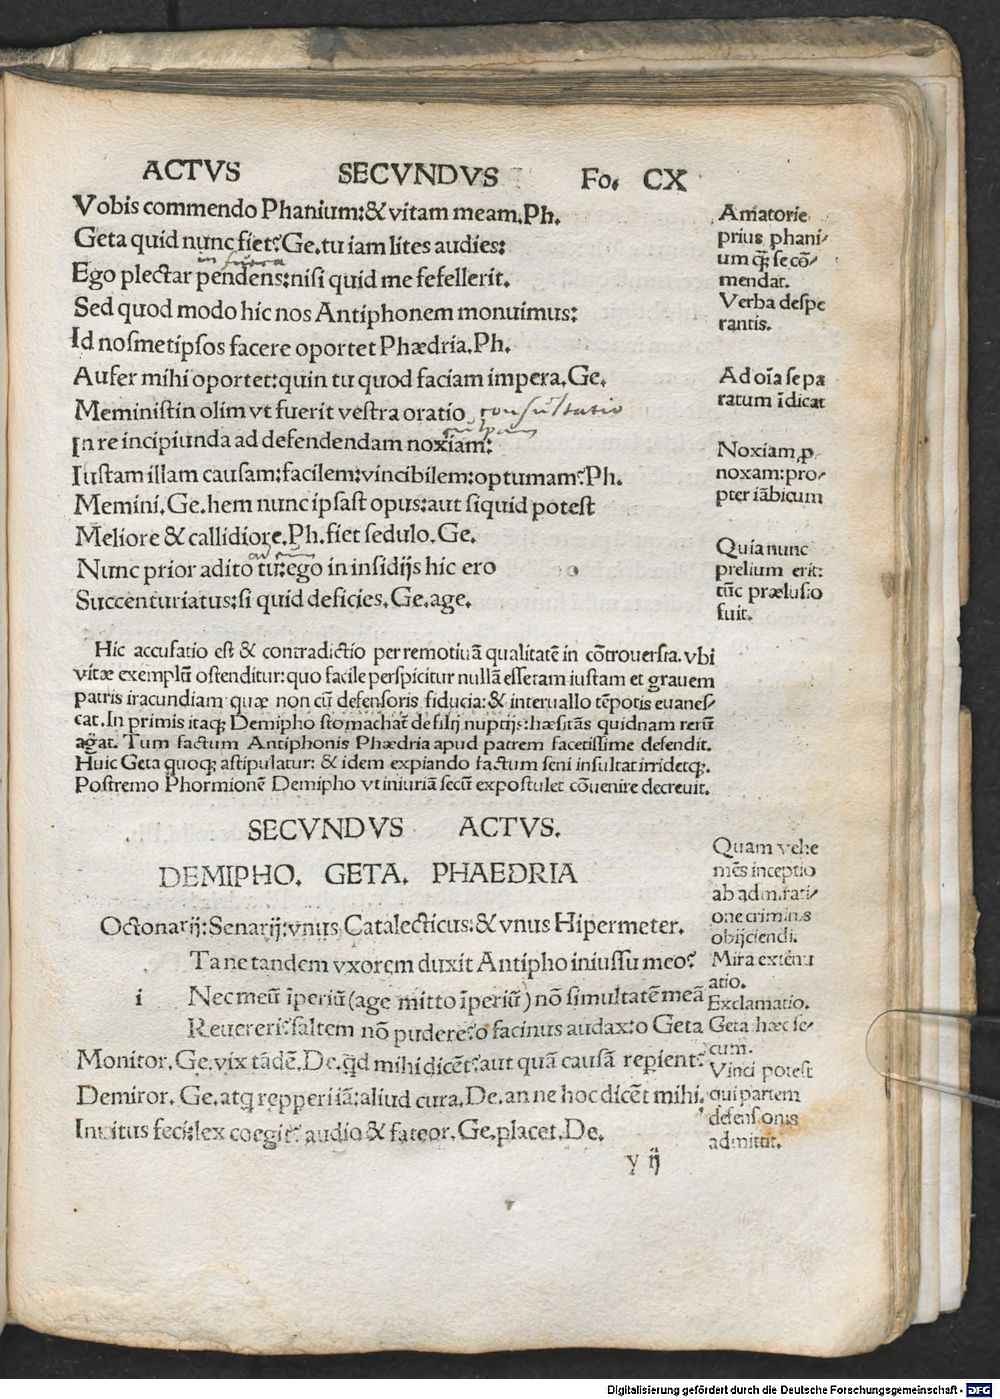 ACTVS SECVNDVS Fo. CX
Vobis commendo Phanium:&vitam meam.Ph.
Geta quid nunc fiet?Ge.tu iam lites audies:
Ego plectar pendens:nisi quid me fefellerit.
Sed quod modo hic nos Antiphonem monuimus:
Id nosmetipsos facere oportet Phædria.Ph.
Aufer mihi oportet:quin tu quod faciam impera.Ge.
Meministin olim vt fuerit vestra oratio consultatio
culpam
In re incipiunda ad defendendam noxiam:
Iustam illam causam:facilem:vincibilem:optumam?Ph.
Memini.Ge.hem nunc ipsast opus:aut siquid potest
Meliore & callidiore.Ph.fiet sedulo.Ge.
Nunc prior adito tu:ego in insidijs hic ero
Succenturiatus:si quid deficies.Ge.age.
Amatorie
prius phani/
um q̃ʒ se cõ/
mendat.
Verba despe
rantis.
Ad oĩa se pa
ratum ĩdicat
Noxiam ꝓ
noxam:pro/
pter iãbicum
Quia nunc
prelium erit:
tũc prælusio
fuit.
Hic accusatio est & contradictio per remotiuã qualitatẽ in cõtrouersia.vbi
vitæ exemplũ ostenditur:quo facile perspicitur nullã esse tam iustam et grauem
patris iracundiam quæ non cũ defensoris fiducia:& interuallo tẽpotis euanes/
cat.In primis itaqʒ Demipho stomachat̃ de filij nuptijs:hæsitãs quidnam rerũ
agat. Tum factum Antiphonis Phædria apud patrem facetissime defendit.
Huic Geta quoqʒ astipulatur: & idem expiando factum seni insultat irridetqʒ.
Postremo Phormionẽ Demipho vt iniuriã secũ expostulet cõuenire decreuit.
SECVNDVS ACTVS.
DEMIPHO. GETA. PHAEDRIA
Octonarij:Senarij:vnus Catalecticus:& vnus Hipermeter.
i Tane tandem vxorem duxit Antipho iniussu meo?
Nec meũ ĩperiũ(age mitto ĩperiũ)nõ simultatẽ meã
Reuereri?saltem nõ pudere?o facinus audax:o Geta
Monitor.Ge.vix tãdẽ.De.qd mihi dicẽt?aut quã causã reperient?
Demiror.Ge.atq repperi iã:aliud cura.De.an ne hoc dicẽt mihi.
Inuitus feci:lex coegit? audio & fateor.Ge.placet.De.
Quam vehe
mẽs inceptio
ab admirati/
one criminis
obijciendi.
Mira extenu
atio.
Exclamatio.
Geta hæc se/
cum.
Vinci potest
qui partem
defensonis
admittit.
y ij
Digitalisierung gefördert durch die Deutsche Forschungsgemeinschaft - DFG